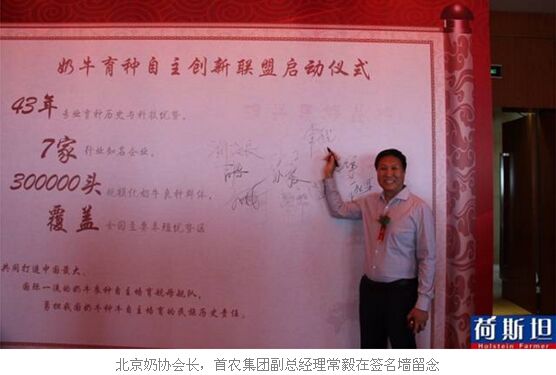 奶牛育种自主创新联盟启动仪式
43年 专业育种历史与科技优势。
7家 行业知名企业。
300000头 规模化奶牛良种群体。
覆盖 全国主要养殖优势区
共同打造中国最大、
国际一流的奶牛良种自主培育航母舰队，
肩担我国奶牛种牛自主培育的民族历史责任。
荷斯坦
Holstein Farmer
北京奶协会长，首农集团副总经理常毅在签名墙留念